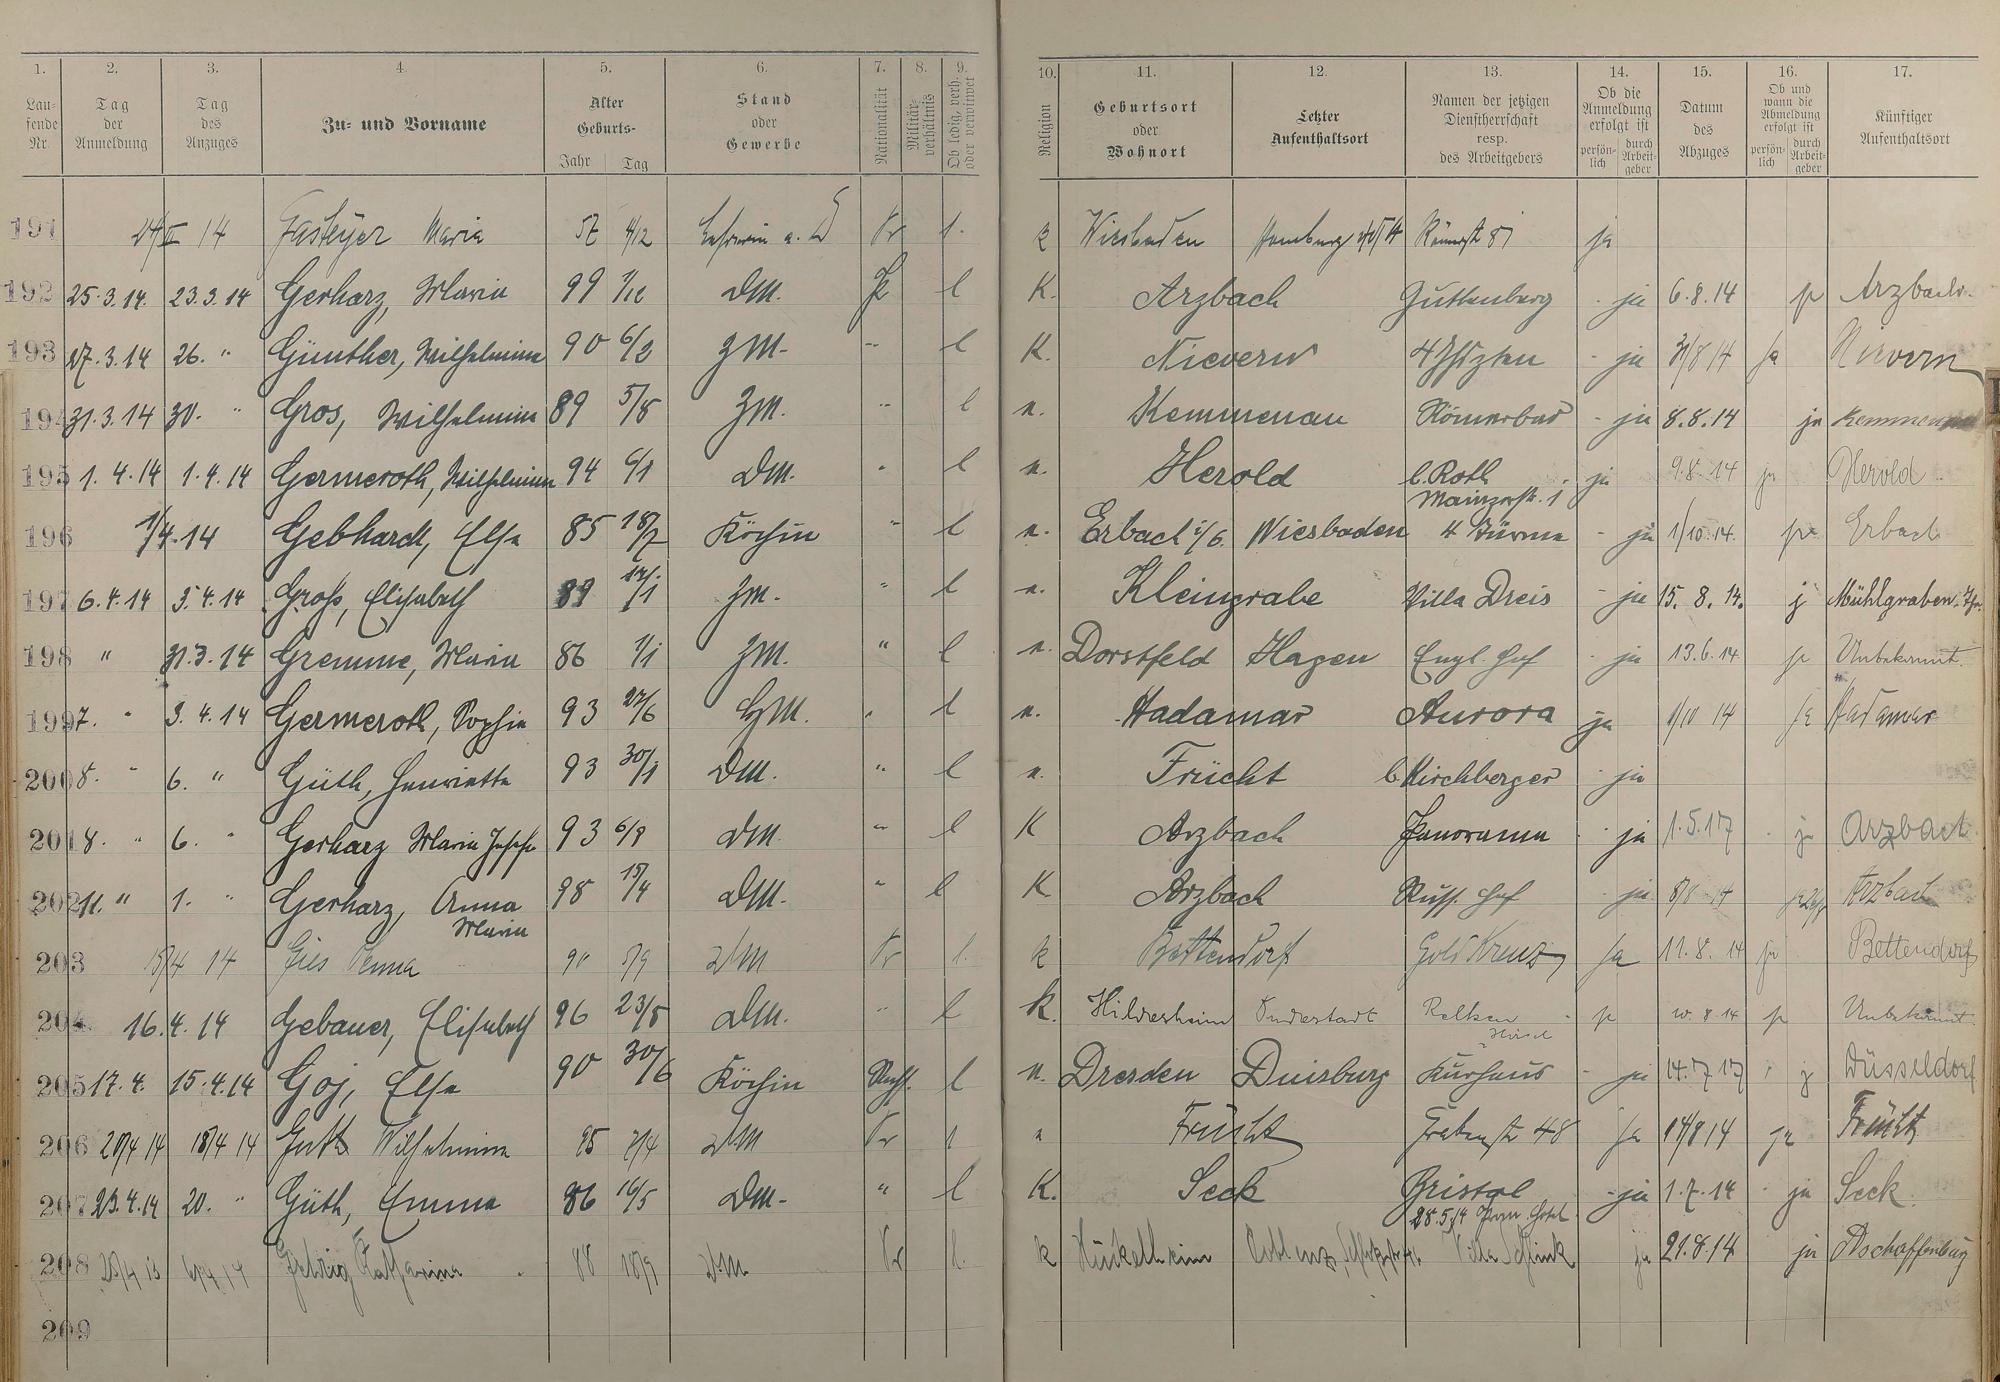 1. 2. 3. 4. 5. 6. 7. 8. 9. 10. 11. 12. 13. 14. 15. 16. 17.
Lau-fende Nr. Tag der Anmeldung Tag des Anzuges Zu- und Vorname Alter Geburts- Jahr Tag Stand oder Gewerbe Nationalität Militär-verhältnis Ob ledig, verh. oder verwitwet Religion Geburtsort oder Wohnort Letzter Aufenthaltsort Namen der jetzigen Dienstherrschaft resp. des Arbeitgebers Ob die Anmeldung erfolgt ist persön-lich durch Arbeit-geber Datum des Abzuges Ob und wann die Abmeldung erfolgt ist persön-lich durch Arbeit-geber Künftiger Aufenthaltsort
191 14 Fasteyer Maria 57 4/12 Lehrerin a. D Pr l. k Wiesbaden Homburg Römerstr 81 ja
192 25.3.14. 23.3.14 Gerharz, Maria 99 1/12 DM. Pr l K. Arzbach Guttenberg - ja 6.8.14 ja Arzbach.
193 27.3.14 26. " Günther, Wilhelmine 90 6/2 ZM. " l K. Nievern 4 Jhszten - ja 31/8 14 ja Nievern
194 31.3.14 30. " Gros, Wilhelmine 89 5/8 ZM. " l n. Kemmenau Römerbad - ja 8.8.14 ja Kemmenau
195 1.4.14 1.4.14 Germeroth, Wilhelmine 94 6/1 DM. " l n. Herold b. Roth Mainzerstr. 1 ja 9.8.14 ja Herold
196 1/4.14 Gebhardt, Elsa 85 18/7 Köchin " l n. Erbach i/6. Wiesbaden 4 Türme - ja 1/10.14. ja Erbach
197 6.4.14 3.4.14 Groß, Elisabeth 89 /1 ZM. " l n. Kleingrabe Villa Dreis - ja 15.8.14. j Mühlgraben. Thr.
198 " 31.3.14 Gremme, Maria 86 1/1 ZM. " l n. Dorstfeld Hagen Engl. Hof - ja 13.6.14 ja Unbekannt.
199 7. " 3.4.14 Germeroth, Sophie 93 27/6 HM. " l n. Hadamar Aurora ja 1/10 14 ja Hadamar
200 8. " 6. " Güth, Henriette 93 30/1 DM. " l n. Frücht b Kirchberger - ja
201 8. " 6. " Gerharz Maria Josefa 93 6/9 DM. " l K Arzbach Panorama - ja 1.5.17 - ja Arzbach.
202 11. " 1. " Gerharz, Anna Maria 98 15/4 DM. " l K Arzbach Russ. Hof - ja 8/8 14 Arzbach
203 15/4 14 Gies Anna 90 5/9 DM Pr l. k Bettendorf Gold Kreuz ja 11.8.14 ja Bettendorf
204 16.4.14 Gebauer, Elisabeth 96 23/8 DM. " l k. Hildesheim Duderstadt - ja 8.14 ja Unbekannt
205 17.4. 15.4.14 Goj, Elsa 90 30/6 Köchin Russ. l n. Dresden Duisburg Kurhaus - ja 14.7.17 " j Düsseldorf
206 20/4 14 18/4 14 Guth Wilhelmine 95 7/4 DM Pr l n Frücht Grabenstr 48 ja 14/8 14 ja Frücht
207 23.4.14 20. " Güth, Emma 86 16/5 DM. " l K. Seck Bristol - ja 1.7.14 - ja Seck.
208 Gehrig Katharina 88 18/9 DM Pr l. k Coblenz, 28.5.14 Hotel Villa Schink ja 21.8.14 ja Aschaffenburg
209